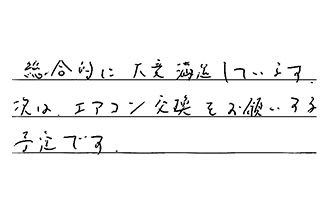 総合的に大変満足しています。
次は、エアコン交換をお願いする
予定です.